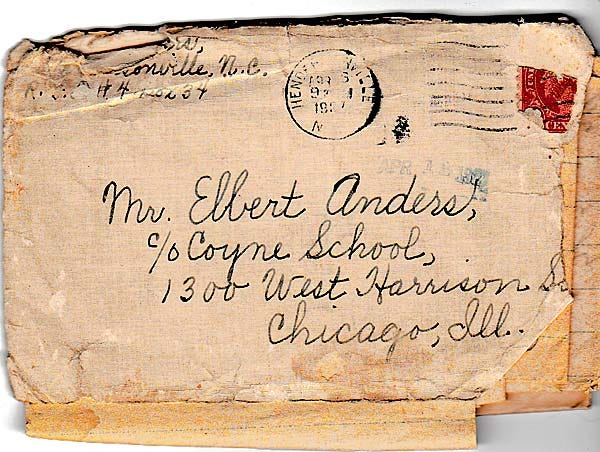 rs,
sonville, N.C.
R.F.D #4 Box 34
HENDE VILLE
APR
9
193
N
APR 1
CEN
Mr. Elbert Anders,
c/o Coyne School,
1300 West Harrison S
Chicago, Ill.